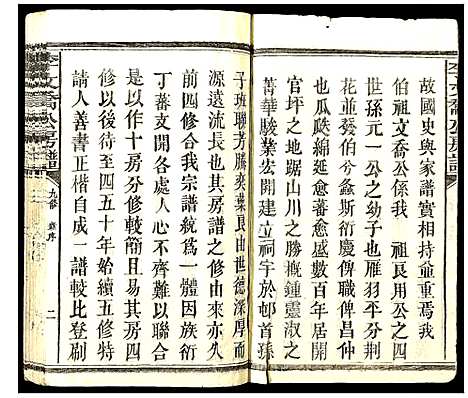 李文喬公房譜
故國史與家譜實相持並重焉我
伯祖文喬公係我　祖良用公之四
世孫元一公之幼子也雁羽平分荆
花並發伯兮螽斯衍慶俾職俾昌
也瓜瓞綿延愈蕃愈盛數百年居開
官坪之地踞山川之勝概鍾靈淑之
菁華駿業宏開建立祠宇於邨首孫
子班聯芳騰奕葉良由世德深厚而
源遠流長也其房譜之修由來亦久
前四修合我宗譜統為一體因族衍
丁蕃支開各處人心不齊難以聯合
是以作十房分修較簡且易其房四
修以後待至四五十年始續五修特
請人善書正楷自成一譜較比登刷
李文喬公房譜
九修
序
二